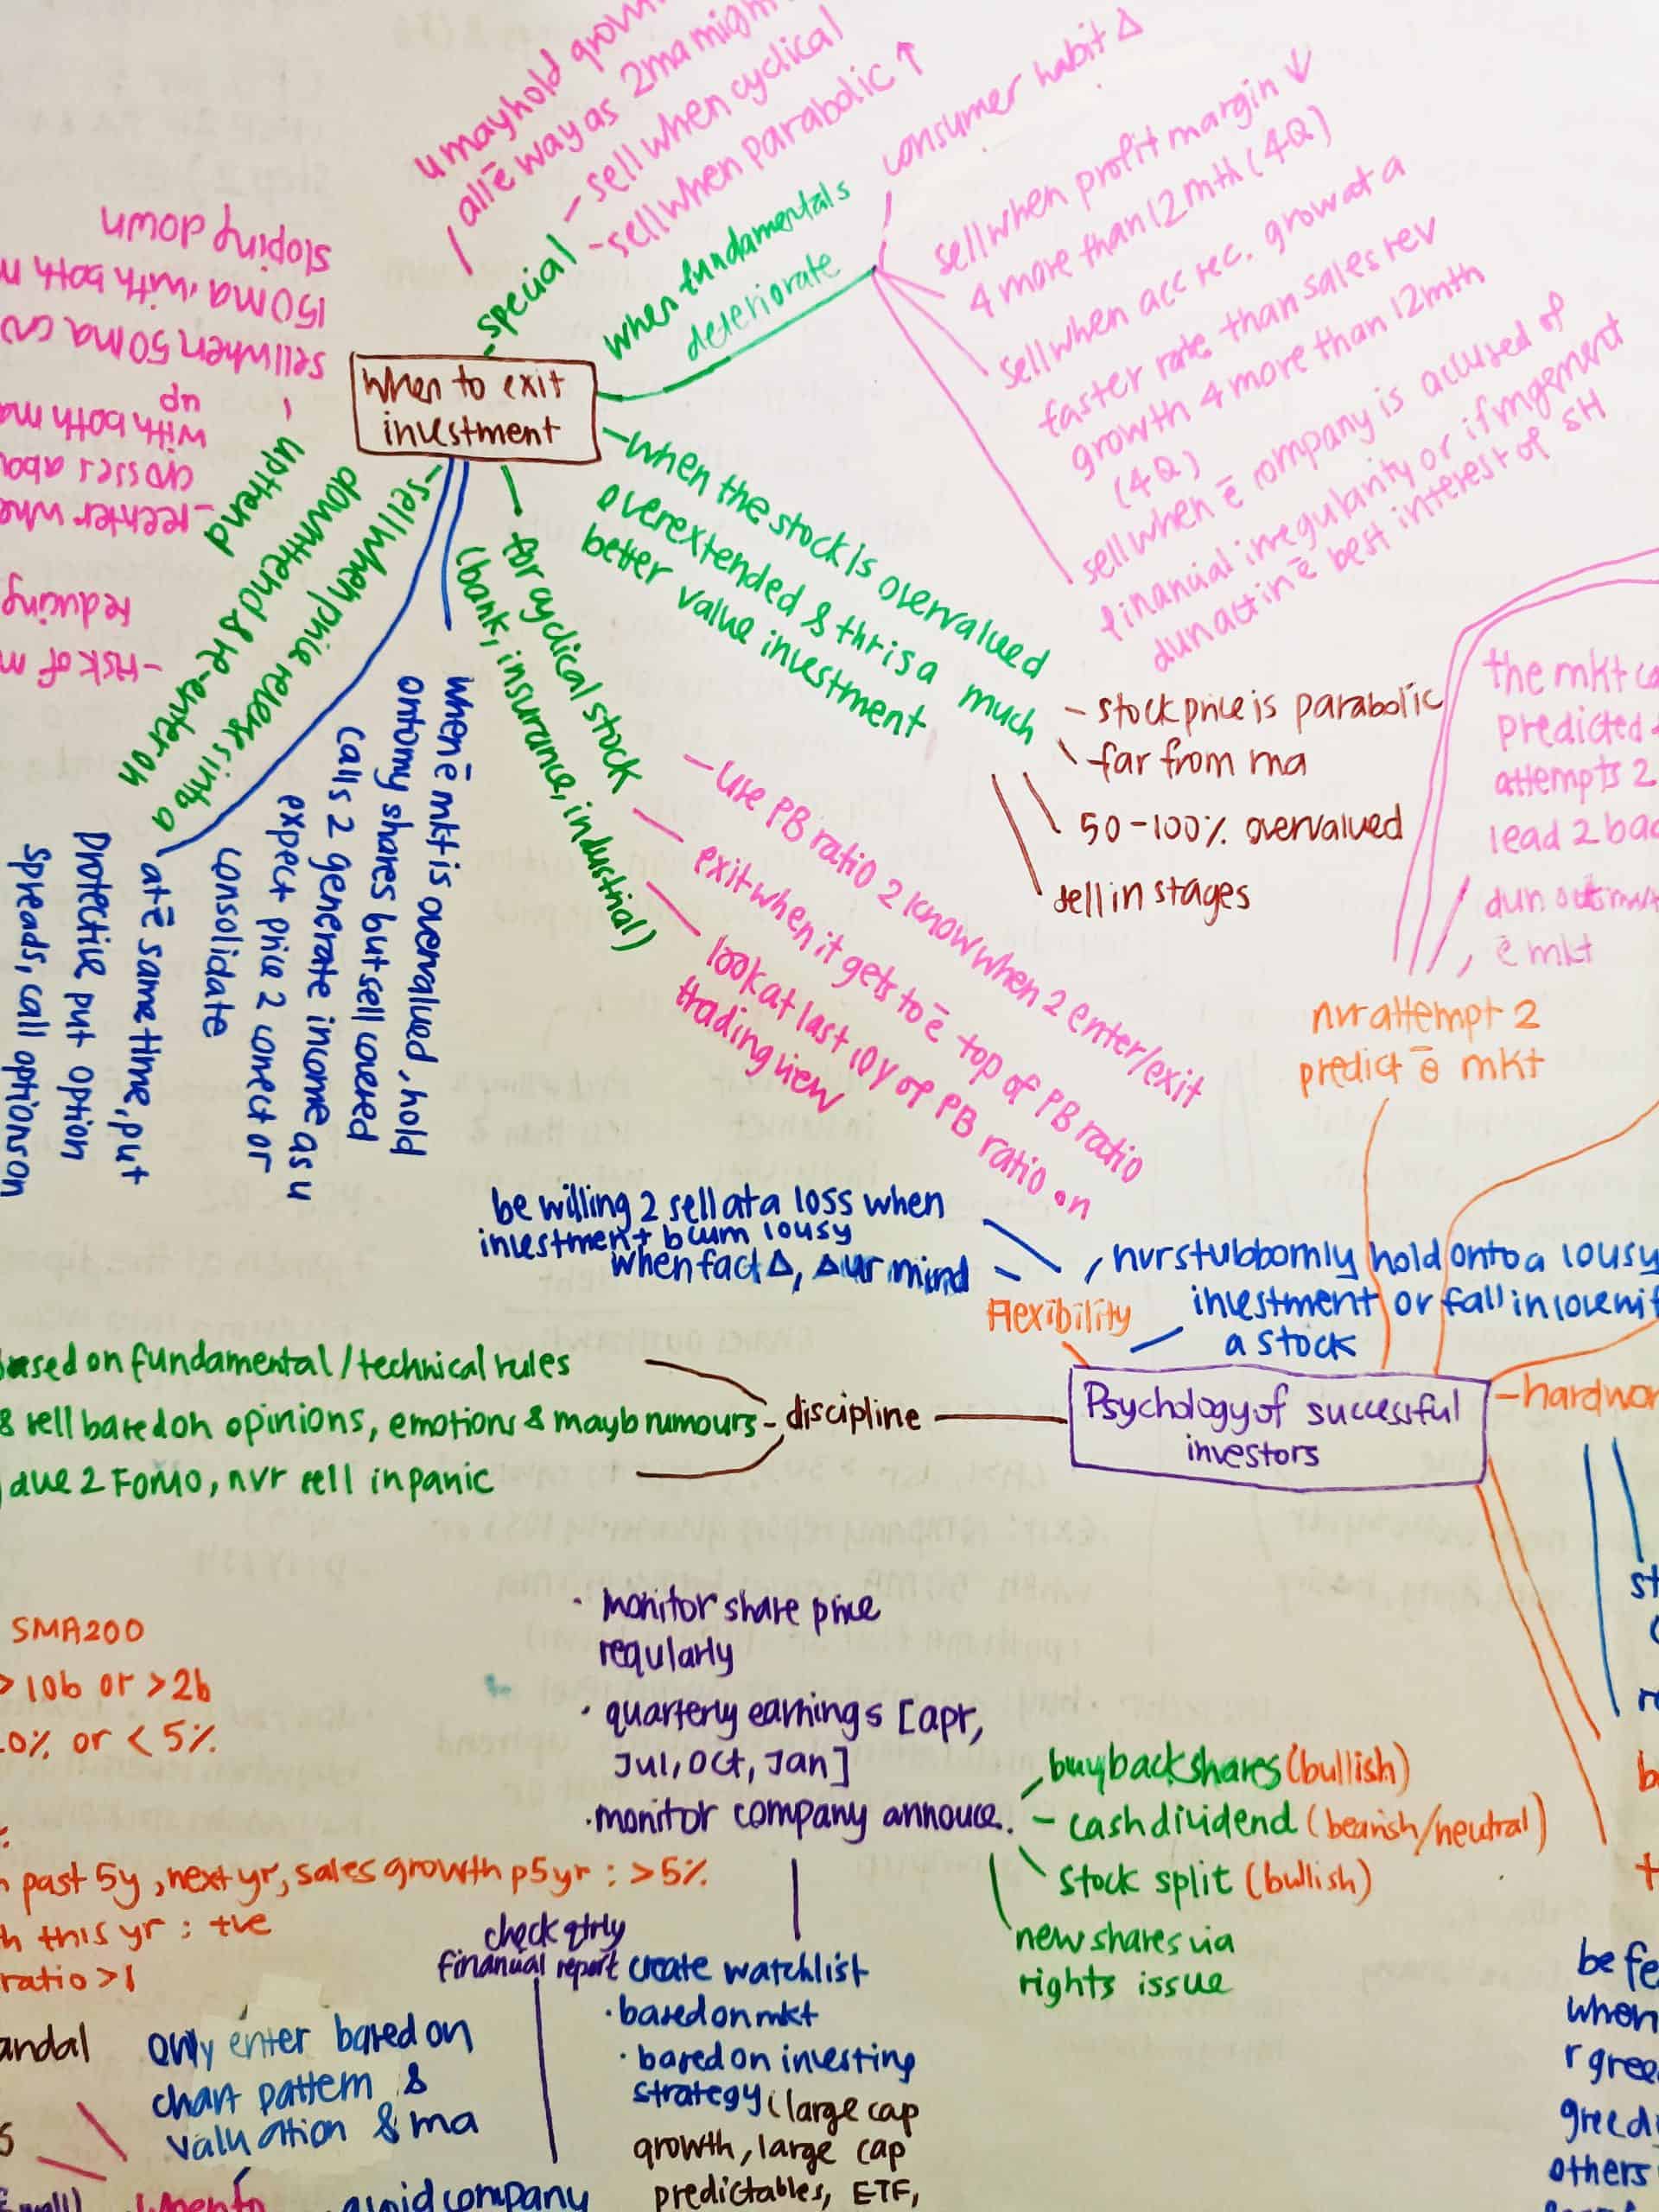 u may hold
all ē way as 2 ma
special
– sell when cyclical
– sell when parabolic ↑
when fundamentals
deteriorate
consumer habit Δ
sell when profit margin ↓
4 more than 12 mth (4Q)
sell when acc rec. grow at a
faster rate than sales rev
growth 4 more than 12mth
(4Q)
sell when ē company is accused of
financial irregularity or if mngement
dun act in ē best interest of SH
When to exit
investment
sell when 50 ma
150 ma, with both
sloping down
– reenter
crosses
with both ma
up
– risk of
reducing
– sell when price reverses into a
downtrend & re-enter on
uptrend
– when the stock is overvalued
overextended & thr is a much
better value investment
– stock price is parabolic
– far from ma
50-100% overvalued
sell in stages
for cyclical stock
(bank, insurance, industrial)
– use PB ratio 2 know when 2 enter/exit
exit when it gets to ē top of PB ratio
look at last 10y of PB ratio on
trading view
when ē mkt is overvalued, hold
onto my shares but sell covered
calls 2 generate income as u
expect price 2 correct or
consolidate
at ē same time, put
protective put option
spreads, call options on
the mkt
predicted
attempts 2
lead 2
dun
ē mkt
nvr attempt 2
predict ē mkt
be willing 2 sell at a loss when
investment bcum lousy
when fact Δ, Δ ur mind
flexibility
nvr stubbornly hold onto a lousy
investment or fall in love
a stock
based on fundamental/technical rules
& sell based on opinions, emotions & mayb rumours
due 2 FOMO, nvr sell in panic
– discipline
Psychology of successful
investors
– hardwor
SMA200
>10b or >2b
0% or <5%
past 5y, next yr, sales growth p5yr : >5%
this yr : +ve
ratio >1
· monitor share price
regularly
· quarterly earnings [apr,
Jul, Oct, Jan]
· monitor company annouce.
buyback shares (bullish)
– cash dividend (bearish/neutral)
stock split (bullish)
new shares via
rights issue
check qtrly
financial report
create watchlist
· based on mkt
· based on investing
strategy (large cap
growth, large cap
predictables, ETF,
only enter based on
chart pattern &
valuation & ma
avoid company
when
greed
others